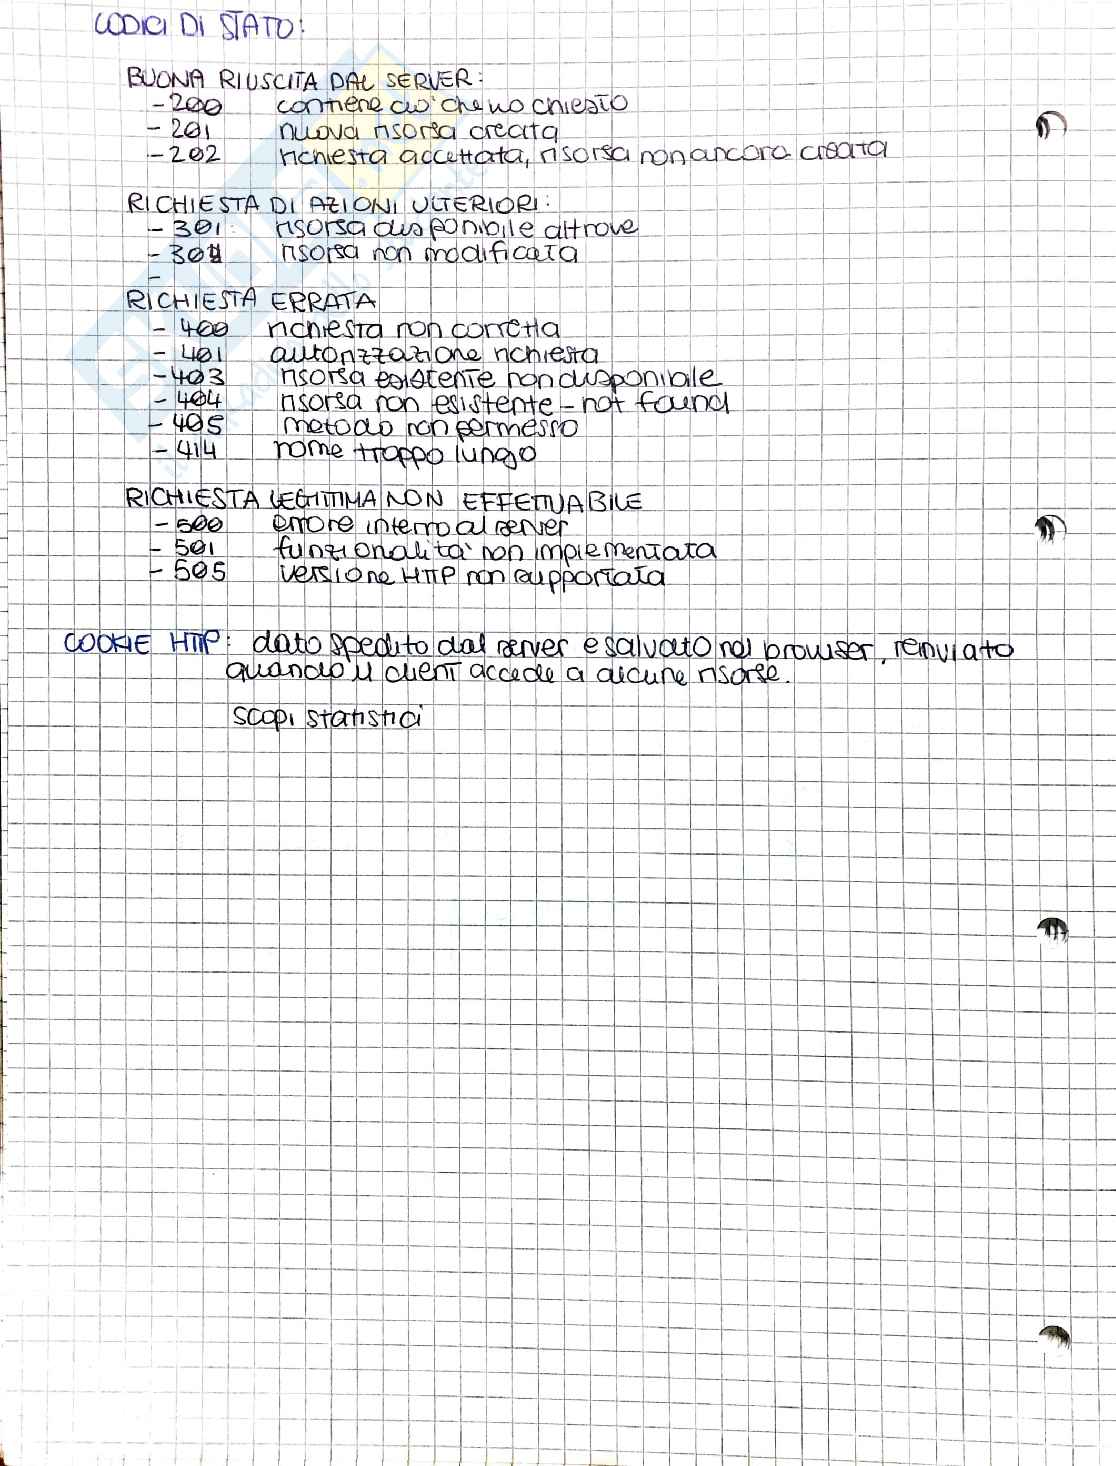 CODICI DI STATO:
BUONA RIUSCITA DAL SERVER:
- 200 contiene ciò che ho chiesto
- 201 nuova risorsa creata
- 202 richiesta accettata, risorsa non ancora creata
RICHIESTA DI AZIONI ULTERIORI:
- 301: risorsa disponibile altrove
- 304 risorsa non modificata
-
RICHIESTA ERRATA
- 400 richiesta non corretta
- 401 autorizzazione richiesta
- 403 risorsa esistente non disponibile
- 404 risorsa non esistente - not found
- 405 metodo non permesso
- 414 nome troppo lungo
RICHIESTA LEGITTIMA NON EFFETTUABILE
- 500 errore interno al server
- 501 funzionalità non implementata
- 505 versione HTTP non supportata
COOKIE HTTP: dato spedito dal server e salvato nel browser, reinviato
quando il client accede a alcune risorse.
scopi statistici